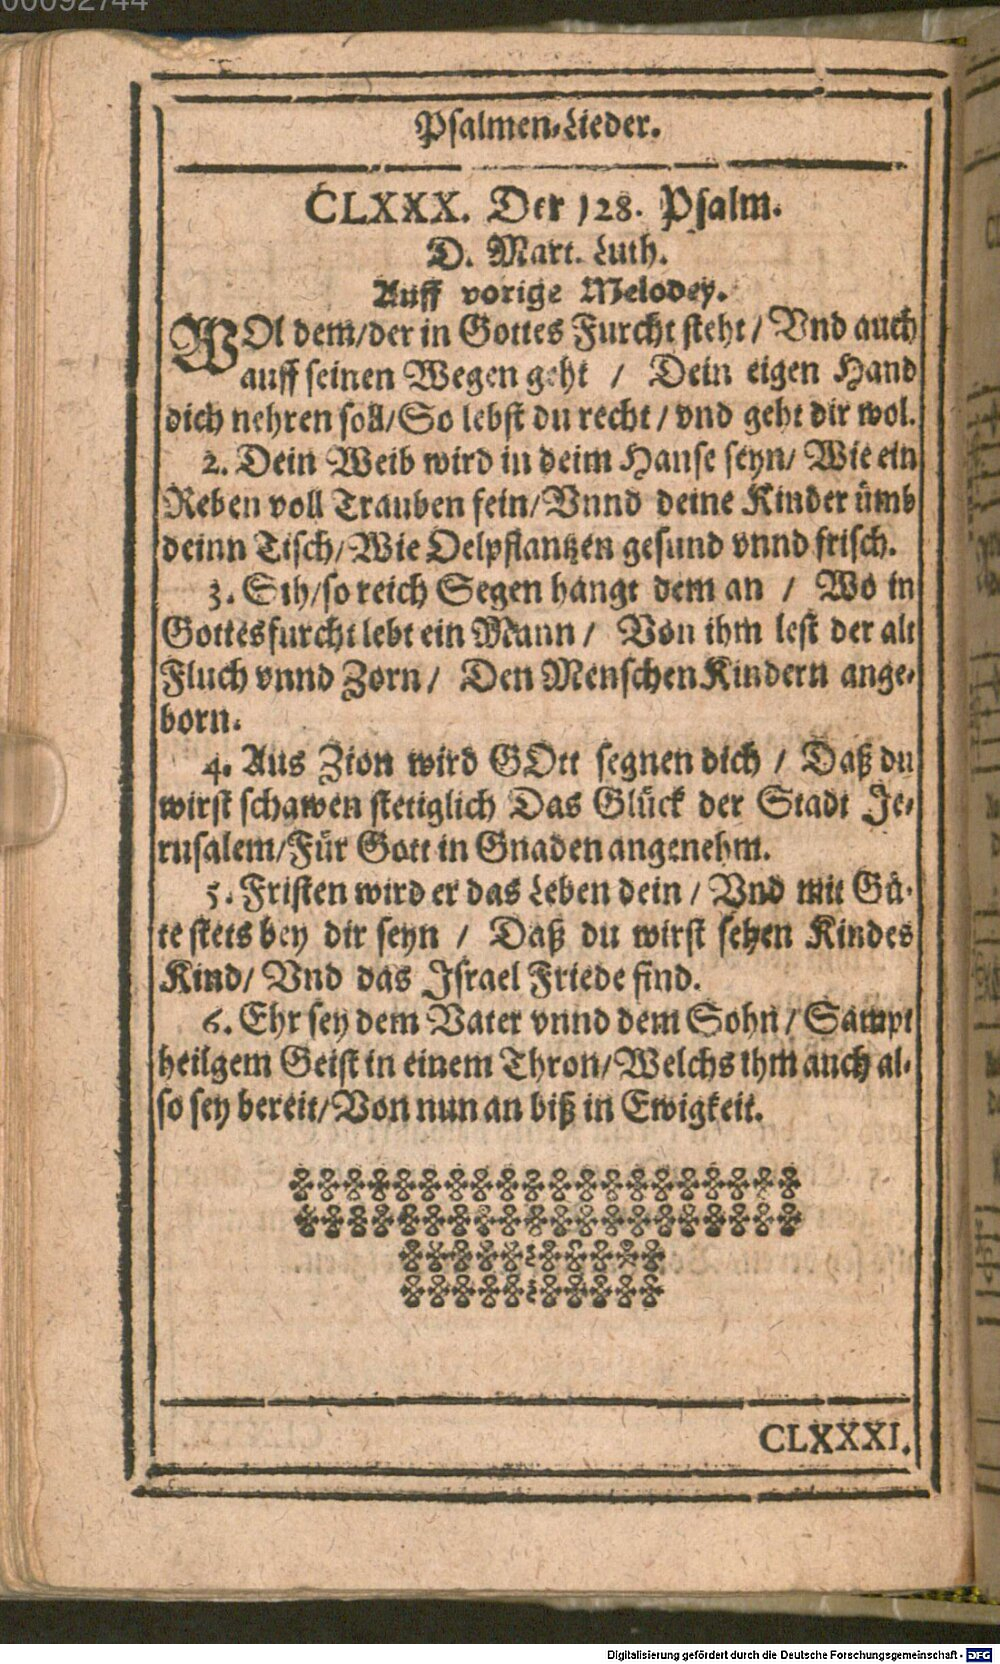 00092744
Psalmen-Lieder.
CLXXX. Der 128. Psalm.
D. Mart. Luth.
Auff vorige Melodey.
WOl dem/der in Gottes Furcht steht / Vnd auch
auff seinen Wegen geht / Dein eigen Hand
dich nehren soll/So lebst du recht / vnd geht dir wol.
2. Dein Weib wird in deim Hause seyn/ Wie ein
Reben voll Trauben fein/Vnnd deine Kinder ümb
deinn Tisch/Wie Oelpflantzen gesund vnnd frisch.
3. Sih/so reich Segen hangt dem an / Wo in
Gottesfurcht lebt ein Mann / Von ihm lest der alt
Fluch vnnd Zorn / Den Menschen Kindern ange-
born.
4. Aus Zion wird GOtt segnen dich / Daß du
wirst schawen stetiglich Das Glück der Stadt Je-
rusalem/Für Gott in Gnaden angenehm.
5. Fristen wird er das Leben dein / Vnd mit Gü-
te stets bey dir seyn / Daß du wirst sehen Kindes
Kind/ Vnd das Israel Friede find.
6. Ehr sey dem Vater vnnd dem Sohn / Sampt
heilgem Geist in einem Thron/Welchs ihm auch al-
so sey bereit/Von nun an biß in Ewigkeit.
CLXXXI.
Digitalisierung gefördert durch die Deutsche Forschungsgemeinschaft - DFG